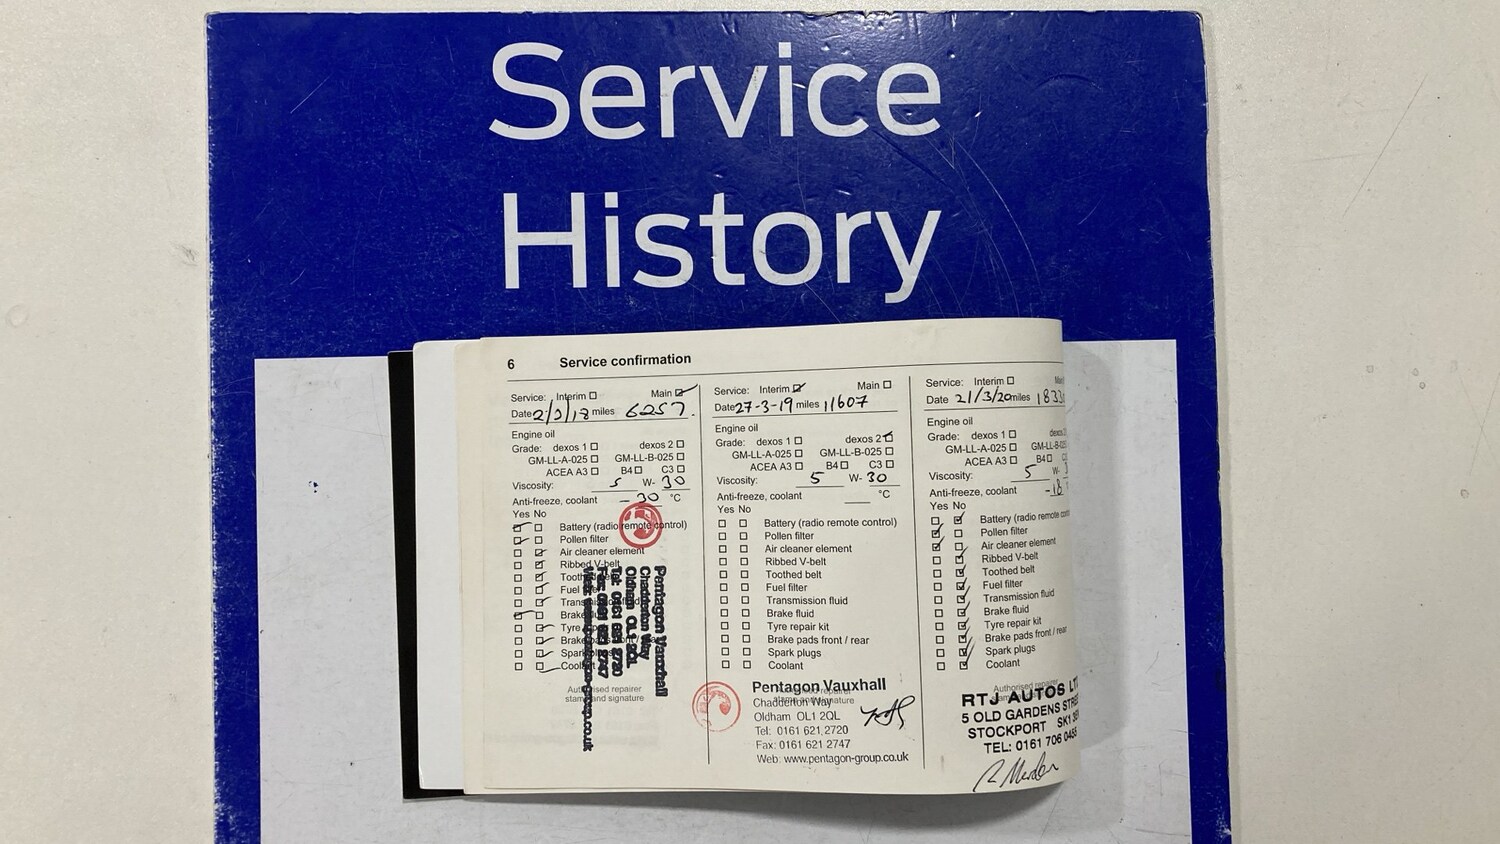 Service
History
6 Service confirmation
Service: Interim Main
Date 2/3/18 miles 6257.
Engine oil
Grade: dexos 1 dexos 2
GM-LL-A-025 GM-LL-B-025
ACEA A3 B4 C3
Viscosity: 5 W- 30
Anti-freeze, coolant -30 °C
Yes No
Battery (radio remote control)
Pollen filter
Air cleaner element
Ribbed V-belt
Tooth
Fuel
Trans
Brake
Tyre
Brake pads front / rear
Spark plugs
Coolant
Authorised repairer
stamp and signature
Pentagon Vauxhall
Chadderton Way
Oldham OL1 2QL
Tel: 0161 621 2720
Fax: 0161 621 2747
Web: www.pentagon-group.co.uk
Service: Interim Main
Date 27-3-19 miles 11607
Engine oil
Grade: dexos 1 dexos 2
GM-LL-A-025 GM-LL-B-025
ACEA A3 B4 C3
Viscosity: 5 W- 30
Anti-freeze, coolant °C
Yes No
Battery (radio remote control)
Pollen filter
Air cleaner element
Ribbed V-belt
Toothed belt
Fuel filter
Transmission fluid
Brake fluid
Tyre repair kit
Brake pads front / rear
Spark plugs
Coolant
Authorised repairer
stamp and signature
Pentagon Vauxhall
Chadderton Way
Oldham OL1 2QL
Tel: 0161 621 2720
Fax: 0161 621 2747
Web: www.pentagon-group.co.uk
Service: Interim
Date 21/3/20 miles 1833
Engine oil
Grade: dexos 1 dexos
GM-LL-A-025 GM-LL-B-025
ACEA A3 B4 C3
Viscosity: 5 W-
Anti-freeze, coolant -18
Yes No
Battery (radio remote
Pollen filter
Air cleaner element
Ribbed V-belt
Toothed belt
Fuel filter
Transmission fluid
Brake fluid
Tyre repair kit
Brake pads front / rear
Spark plugs
Coolant
Authorised repairer
RTJ AUTOS LT
5 OLD GARDENS STRE
STOCKPORT SK1
TEL: 0161 706 0455